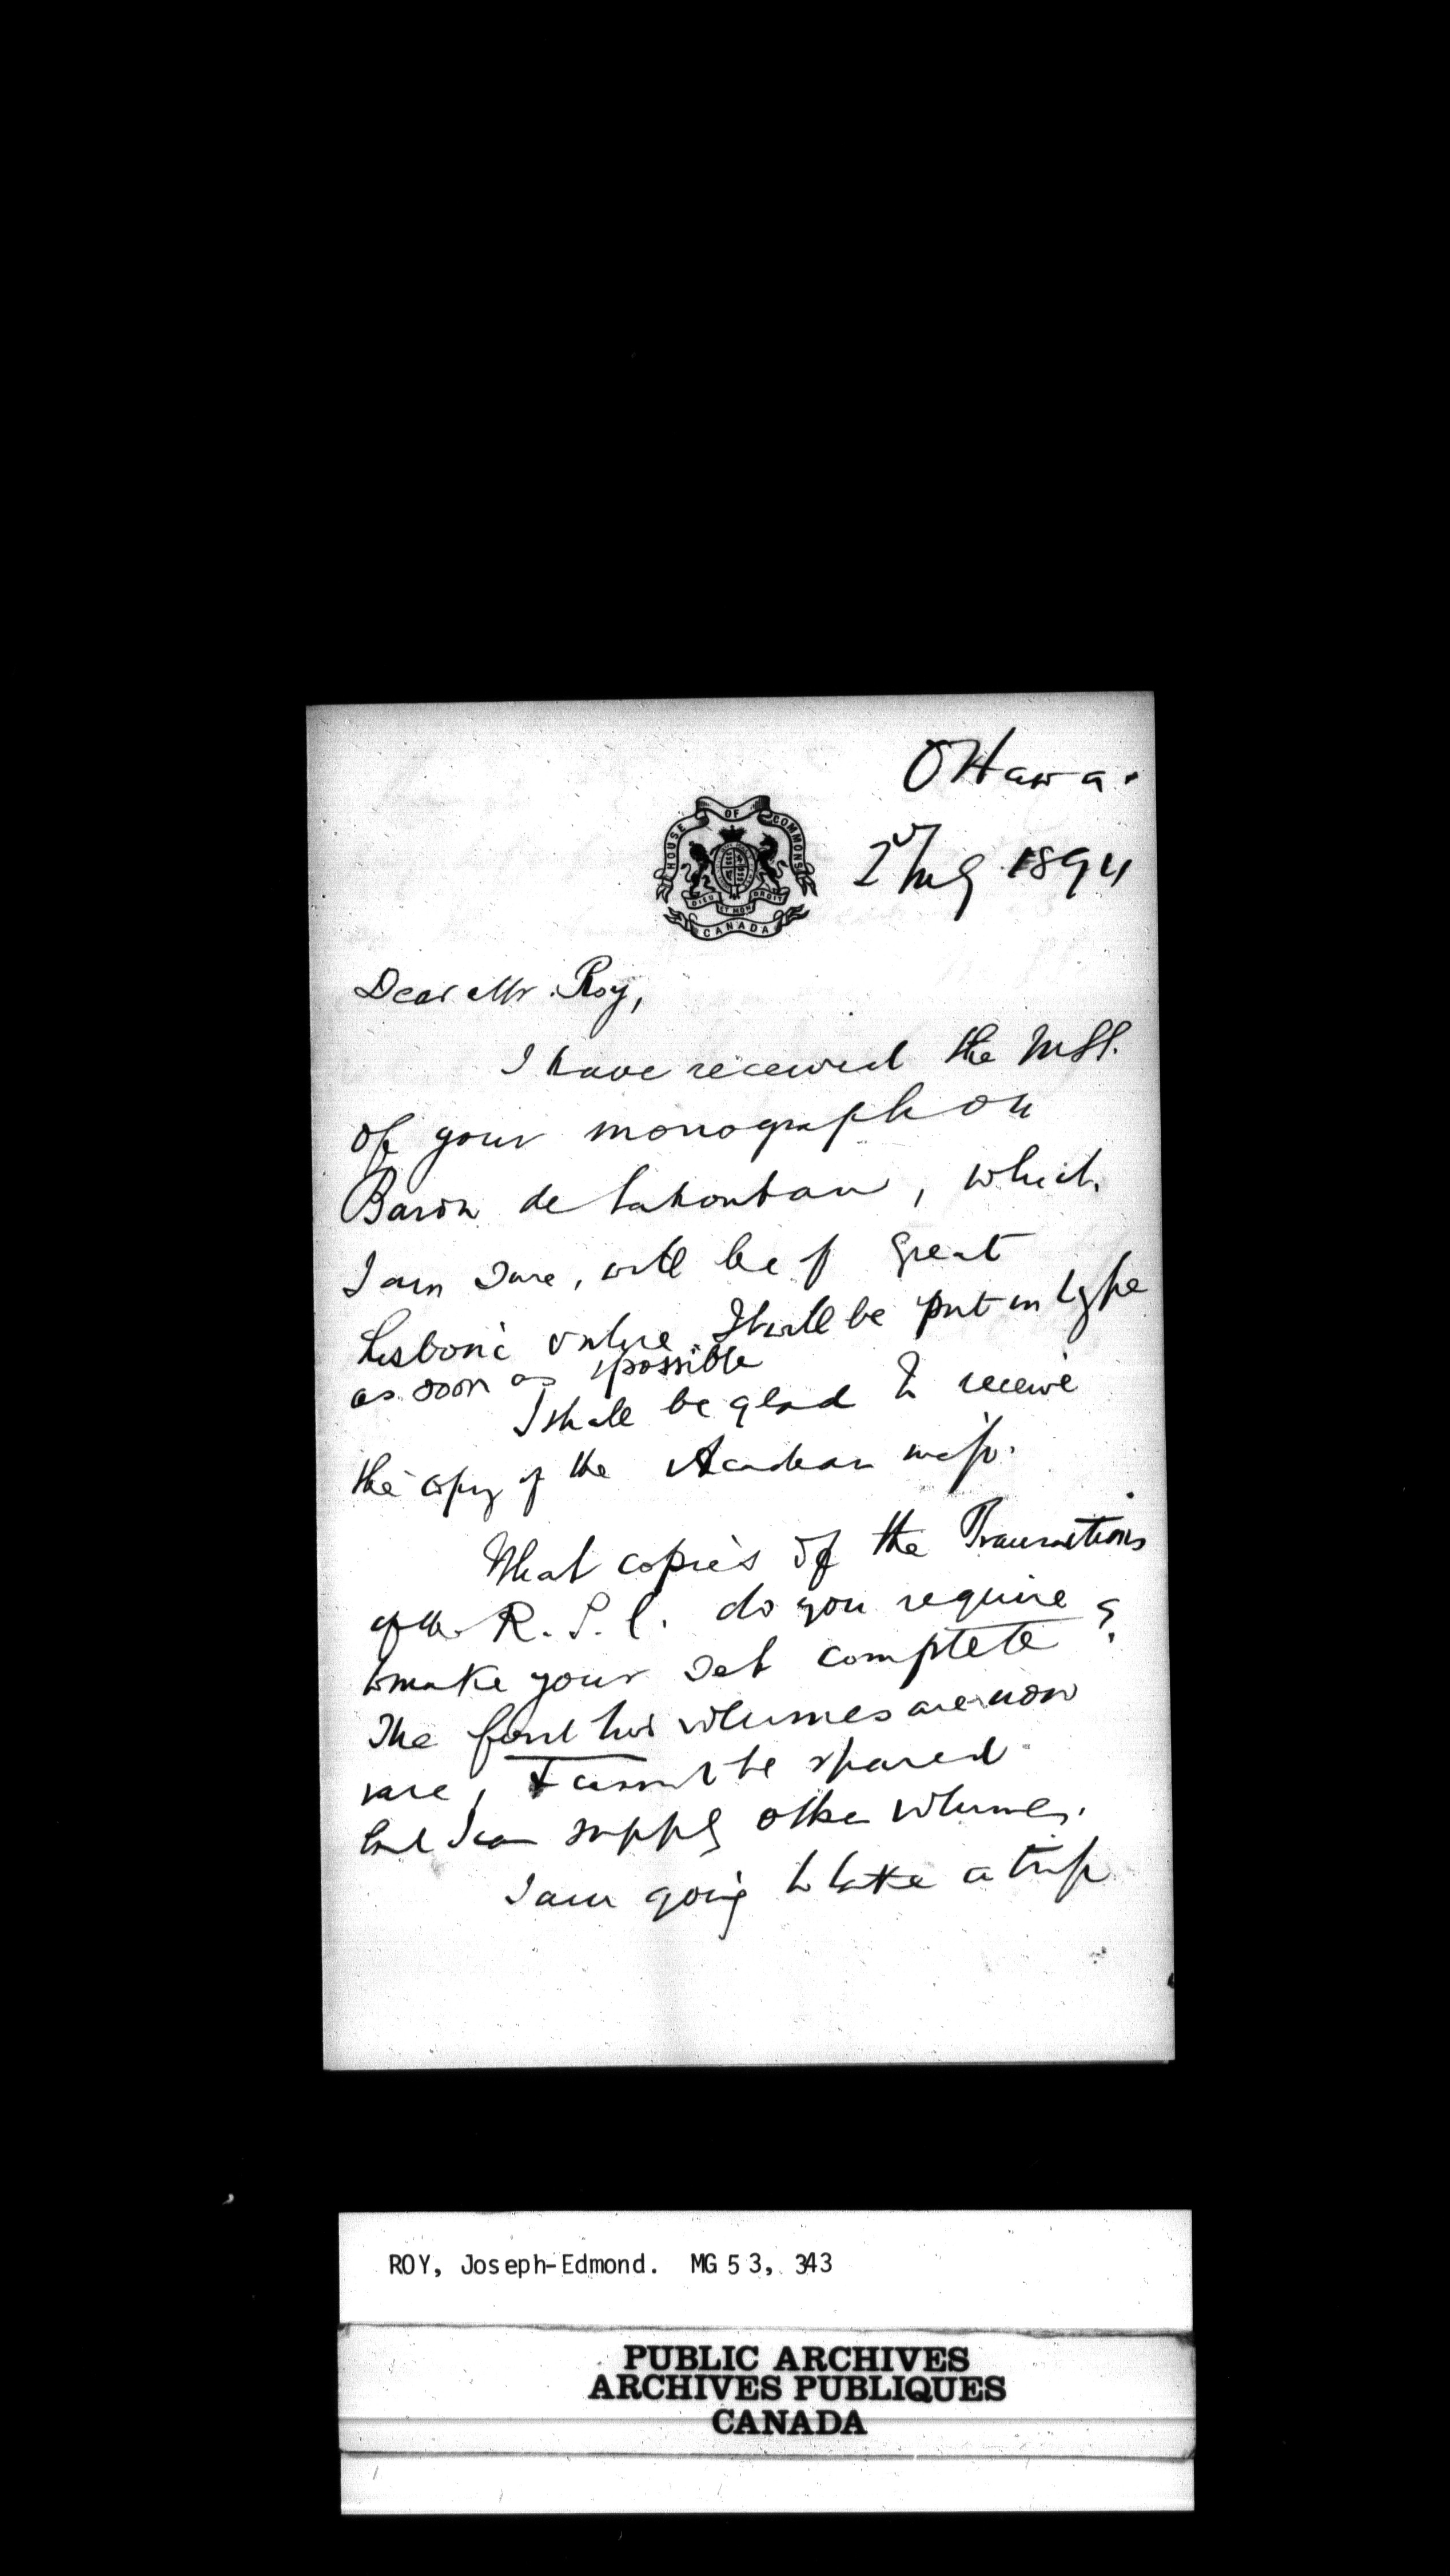 Ottawa.
HOUSE OF COMMONS
DIEU ET MON DROIT
CANADA
1894
Dear Mr. Roy,
I have received the MSS.
of your monograph on
Baron de Lahontan, which,
I am sure, will be of great
historic value. It will be put in type
as soon as possible
I shall be glad to receive
the copy of the Acadean map.
What copies of the Transactions
of the R. S. C. do you require
to make your set complete?
The first two volumes are now
rare, & cannot be spared
but I can supply other volumes.
I am going to take a trip
ROY, Joseph-Edmond. MG 53, 343
PUBLIC ARCHIVES
ARCHIVES PUBLIQUES
CANADA